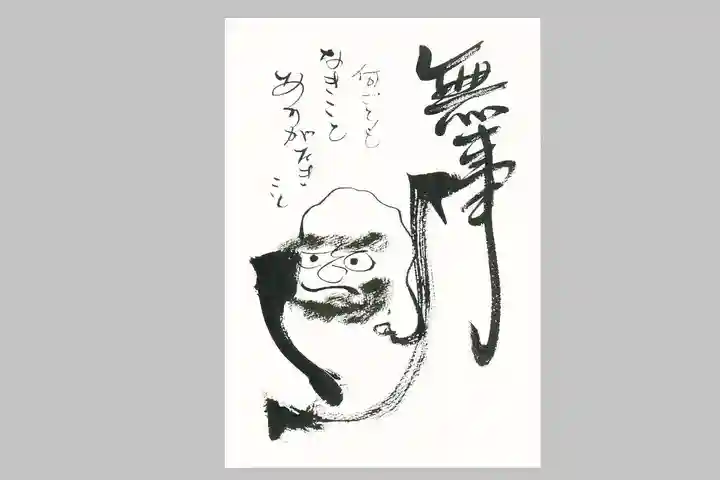 無事
何ごとも
なきこと
ありがたき
こと